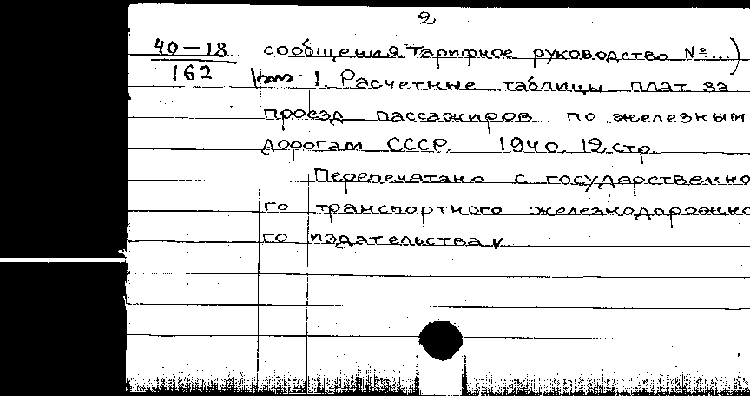 2
40-18 сообщения Тарифное руководство № ...)
162 1. Расчетные таблицы плат за
проезд пассажиров по железным
дорогам СССР. 1940. 12 стр.
Перепечатано с государственно
го транспортного железнодорожно
го издательства